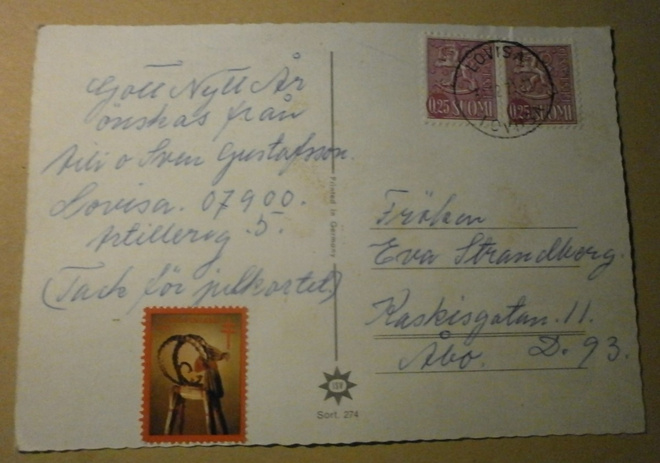 Gott Nytt År
önskas från
Vili o Sven Gustafsson.
Lovisa. 07900.
Artillerig. 5.
(Tack för julkortet)
Printed in Germany
Sort. 274
0,25 SUOMI
0,25 SUOMI
LOVISA
LOVIISA
Fröken
Eva Strandborg.
Kaskisgatan. 11.
Åbo. D. 93.